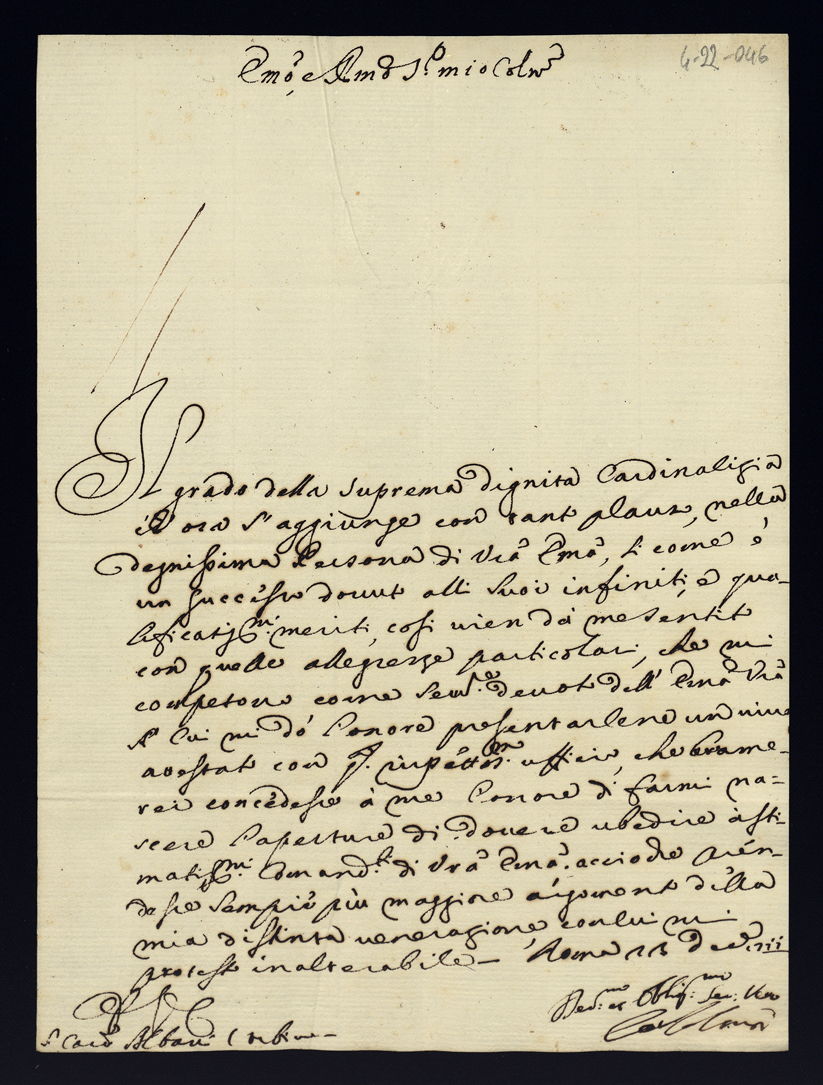 4-22-046
Emo, e Rmo Sr. mio Colmo
Il grado della Suprema dignita Cardinaligia
ch' ora s'aggiunge con tant plaus, nella
degnissima Persona di Vra Ema, si come è
un successo dovut alli Suoi infiniti, e qua-
lificatissmi meriti, cosi vien da me sentit
con quelle allegrezze particolari, che mi
competono come Serv.e devot dell' Ema Vra
A Cui mi dò l'onore presentarlene un vivo
atestat con q. rispettosmo ufficio, che brame-
rei concedesse à me l'onore di farmi na-
scere l'aperture di dovere ubedire à sti-
matissmi Comand.ti di Vra Ema. acciò che ren-
desse sempre più maggiore argoment della
mia distinta venerazione con cui mi
protest inalterabile — Roma 23 Dec.
Sr. Card Albani Urbino —
Dev.mo et Oblig.mo Ser. Vero